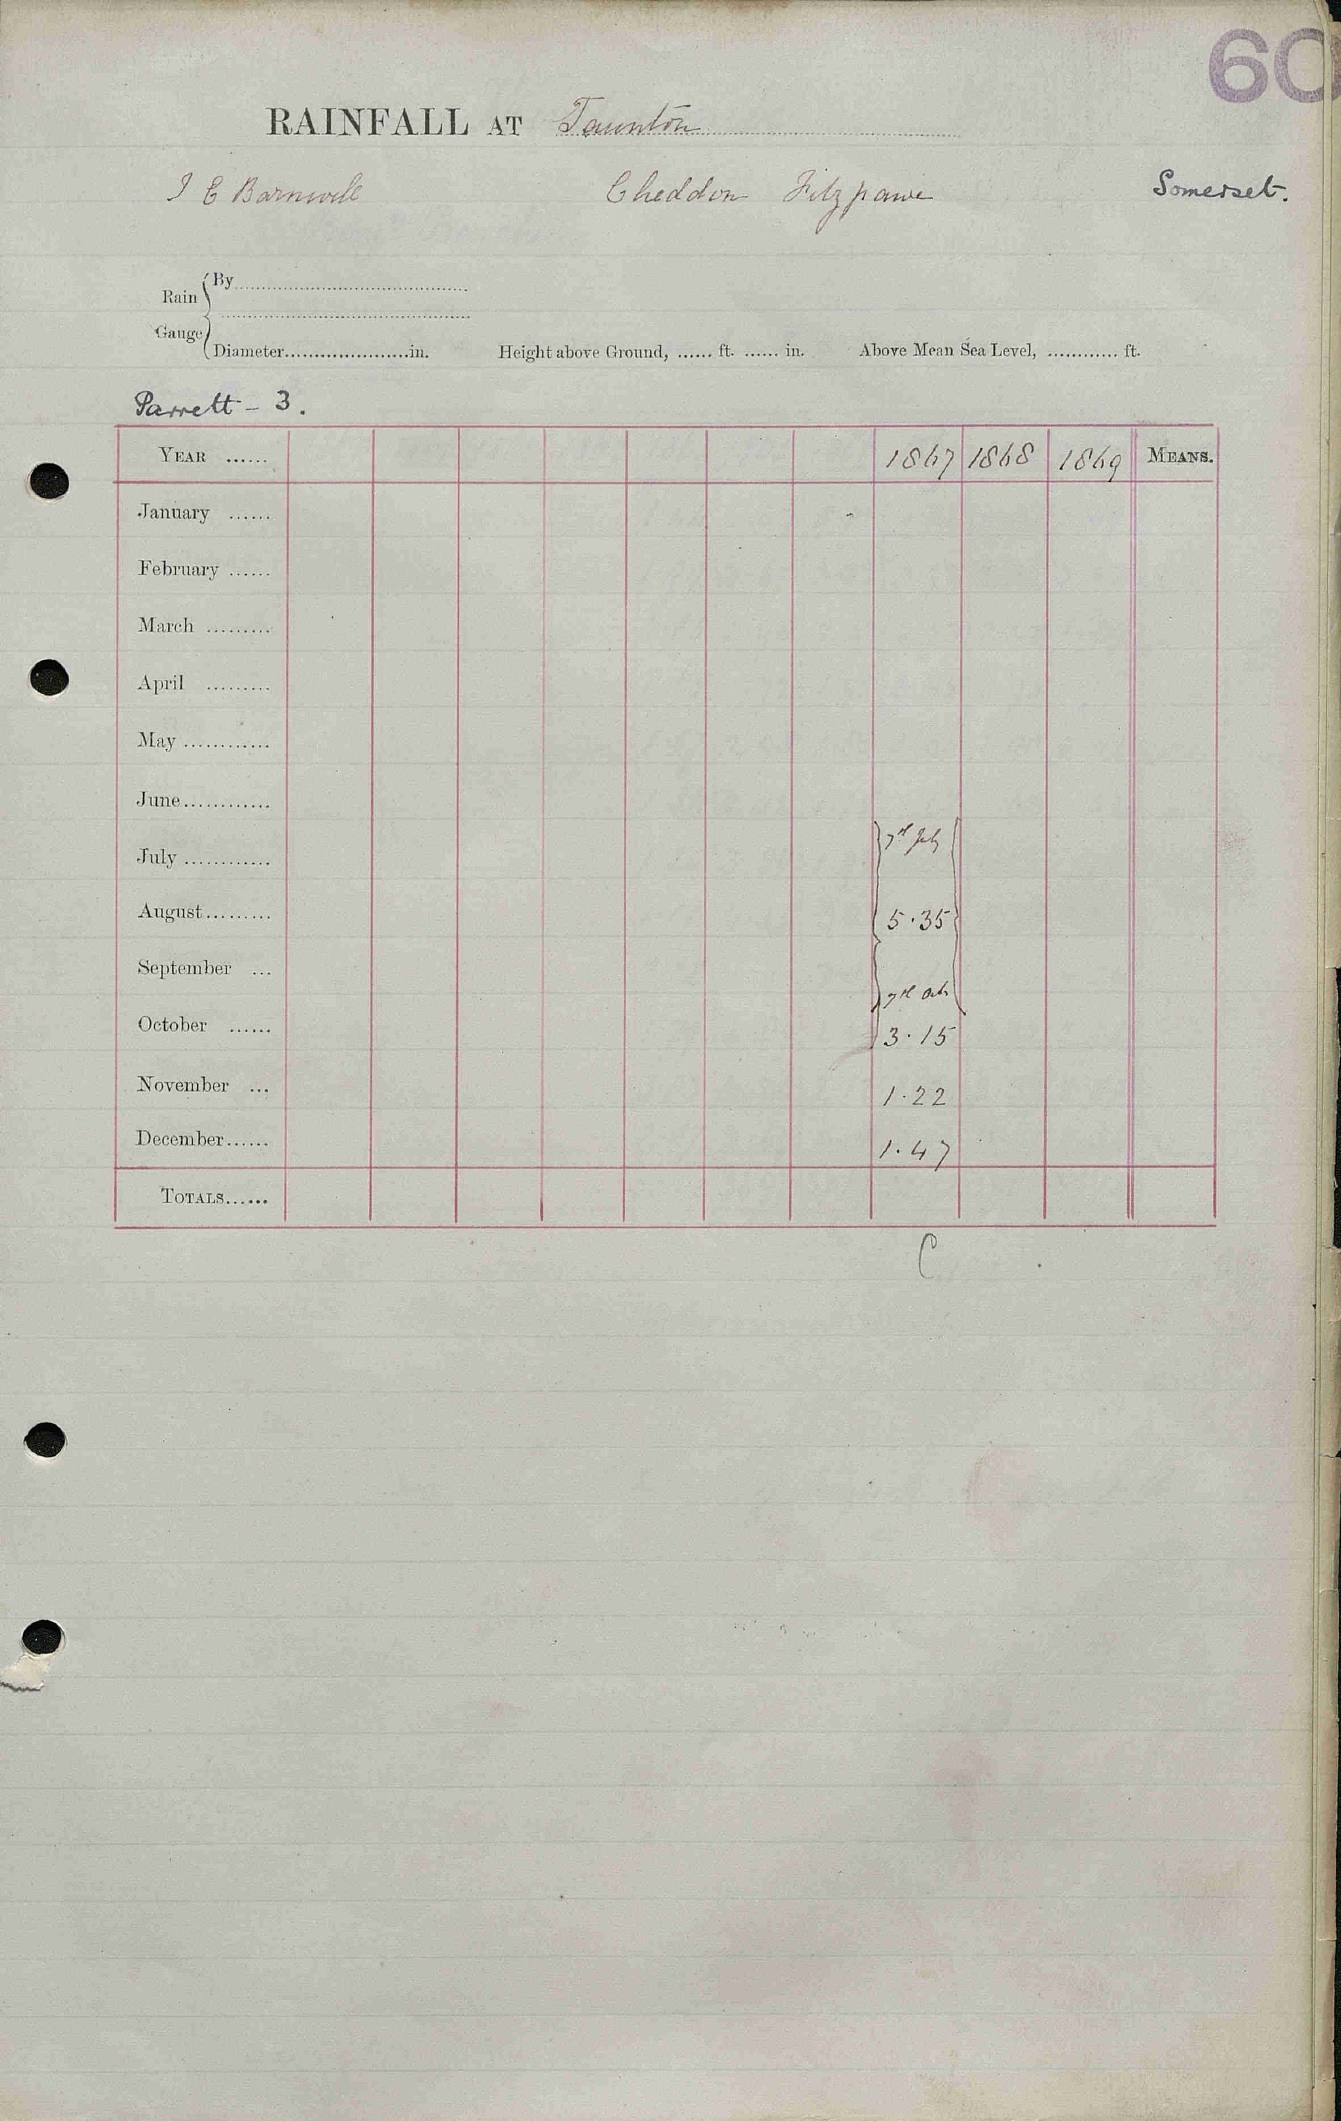 60
RAINFALL AT Taunton
J E Barnwell Cheddon Fitzpaine Somerset.
Rain Gauge
By
Diameter in. Height above Ground, ft. in. Above Mean Sea Level, ft.
Parrett - 3.
YEAR 1867 1868 1869 MEANS.
January
February
March
April
May
June
7th July
July
August 5.35
September
7th Oct
October 3.15
November 1.22
December 1.47
TOTALS
C